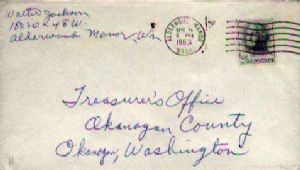 Walter Jackson
18020 - 48 W.
Alderwood Manor, Wn
ALDERWOOD MANOR
1963
WASH.
Treasurer's Office
Okanogan County
Okanogan, Washington